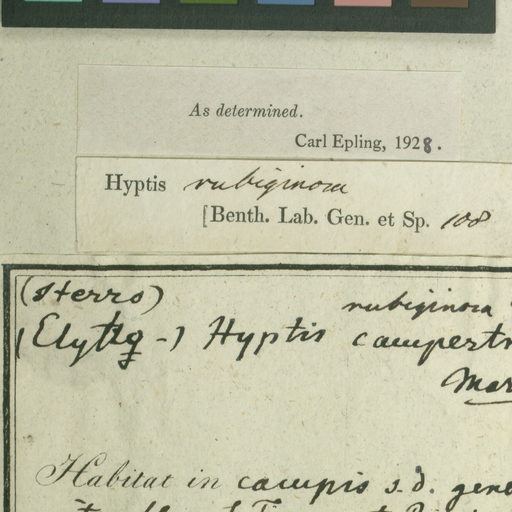 As determined.
Carl Epling, 1928.
Hyptis rubiginosa
[Benth. Lab. Gen. et Sp. 108
(sterro)
rubiginosa
Hyptis campestr
Mar
Habitat in campis s.d. gene